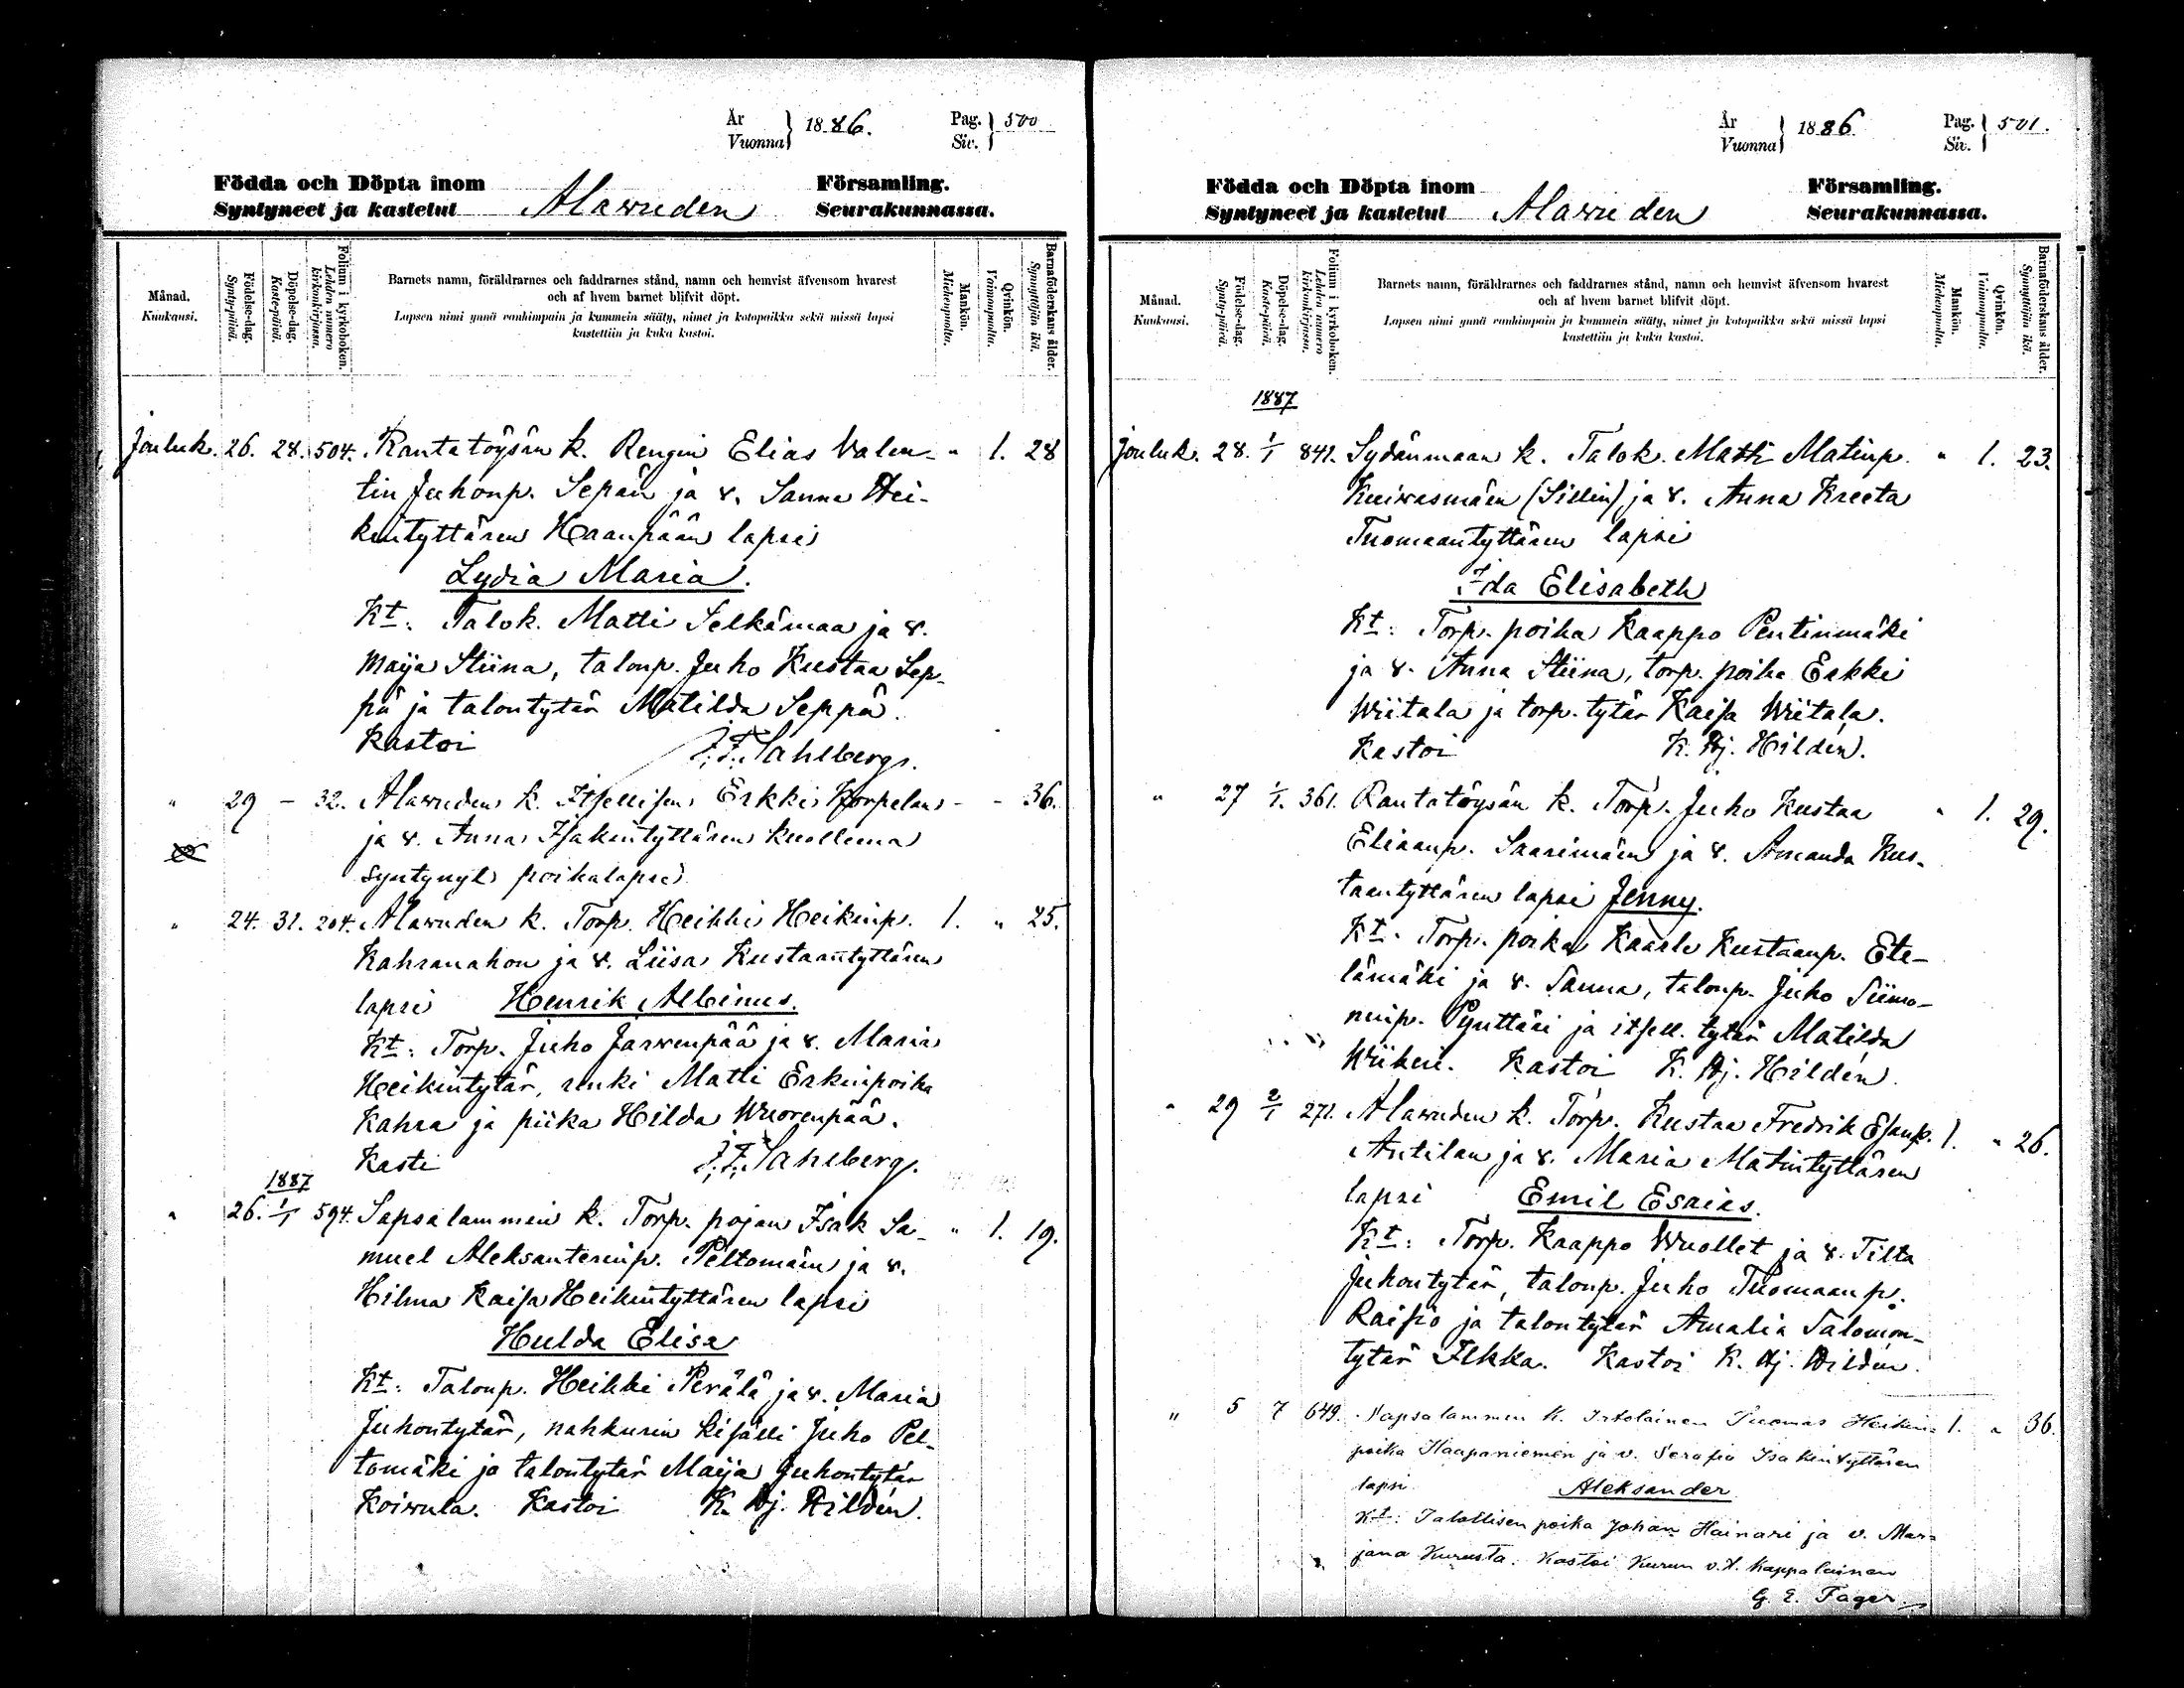 År
Vuonna } 1886. Pag.
Siv. } 500
Födda och Döpta inom Alavuden Församling.
Syntyneet ja kastetut Seurakunnassa.
Månad.
Kuukausi.
Födelse-dag.
Synty-päivä.
Döpelse-dag.
Kaste-päivä.
Folium i kyrkoboken.
Lehden numero
kirkonkirjassa.
Barnets namn, föräldrarnes och faddrarnes stånd, namn och hemvist äfvensom hvarest
och af hvem barnet blifvit döpt.
Lapsen nimi ynnä vanhimpain ja kummein sääty, nimet ja kotopaikka sekä missä lapsi
kastettiin ja kuka kastoi.
Mankön.
Miehenpuolia.
Qvinkön.
Vaimonpuolia.
Barnaföderskans ålder.
Synnyttäjän ikä.
Jouluk. 26. 28. 504. Rantatöysän k. Rengin Elias Valen- " 1. 28
tin Juhonp. Sepän ja v. Sanna Hei-
kintyttären Haanpään lapsi
Lydia Maria.
Kt: Talok. Matti Selkämaa ja v.
Maija Stiina, talonp. Juho Kustaa Sep-
pä ja talontytär Matilda Seppä.
Kastoi J.F. Sahlberg.
" 29 - 32. Alavuden k. Itsellisen Erkki Korpelan - - 36.
ja v. Anna Isakintyttären kuollena
syntynyt poikalapsi
" 24. 31. 204. Alavuden k. Torp. Heikki Heikinp. 1. " 25.
Kahranahon ja v. Liisa Kustaantyttären
lapsi Henrik Albinus.
Kt: Torp. Juho Jarvenpää ja v. Maria
Heikintytär, renki Matti Erkinpoika
Kahra ja piika Hilda Wuorenpää.
Kasti J.F. Sahlberg.
1887
" 26. 1/1 594. Sapsalammin k. Torp. pojan Isak Sa- " 1. 19.
muel Aleksanterinp. Peltomäen ja v.
Hilma Kaisa Heikintyttären lapsi
Hulda Elisa
Kt: Talonp. Heikki Perälä ja v. Maria
Juhontytär, nahkurin kisälli Juho Pel-
tomäki ja talontytär Maija Juhontytär
Koivula. Kastoi K. Hj. Hildén.
År
Vuonna } 1886 Pag.
Siv. } 501.
Födda och Döpta inom Alavuden Församling.
Syntyneet ja kastetut Seurakunnassa.
Månad.
Kuukausi.
Födelse-dag.
Synty-päivä.
Döpelse-dag.
Kaste-päivä.
Folium i kyrkoboken.
Lehden numero
kirkonkirjassa.
Barnets namn, föräldrarnes och faddrarnes stånd, namn och hemvist äfvensom hvarest
och af hvem barnet blifvit döpt.
Lapsen nimi ynnä vanhimpain ja kummein sääty, nimet ja kotopaikka sekä missä lapsi
kastettiin ja kuka kastoi.
Mankön.
Miehenpuolia.
Qvinkön.
Vaimonpuolia.
Barnaföderskans ålder.
Synnyttäjän ikä.
1887
Jouluk. 28. 1/1 841. Sydänmaan k. Talok. Matti Matinp. " 1. 23.
Kuivasmäen (Sillin) ja v. Anna Kreeta
Tuomaantyttären lapsi
Ida Elisabeth
Kt: Torp. poika Kaappo Pentinmäki
ja v. Anna Stiina, torp. poika Erkki
Wiitala ja torp. tytär Kaisa Wiitala.
Kastoi K. Hj. Hildén.
" 27 1/1. 361. Rantatöysän k. Torp. Juho Kustaa " 1. 29.
Eliaanp. Saarimäen ja v. Amanda Kus-
taantyttären lapsi Jenny.
Kt. Torp. poika Kaarle Kustaanp. Ete-
lämäki ja v. Sanna, talonp. Juho Siimo-
ninp. Pynttäri ja itsell. tytär Matilda
Wiikeri. Kastoi K. Hj. Hildén
" 29 2/1 271. Alavuden k. Torp. Kustaa Fredrik Esaup. 1. " 26.
Antilan ja v. Maria Matintyttären
lapsi Emil Esaias.
Kt: Torp. Kaappo Wuollet ja v. Tilta
Juhontytär, talonp. Juho Tuomaanp.
Raisio ja talontytär Amalia Salomon-
tytär Ilkka. Kastoi K. Hj. Hildén.
" 5 7 649. Sapsalammin k. Irtolainen Tuomas Heikin= 1. " 36.
poika Haapaniemen ja v. Serafia Isakintyttären
lapsi Aleksander
Kt: Talollisen poika Johan Hainari ja v. Mar=
jana Kurusta. Kastoi Kurun v.t. kappalainen
G. E. Fager.